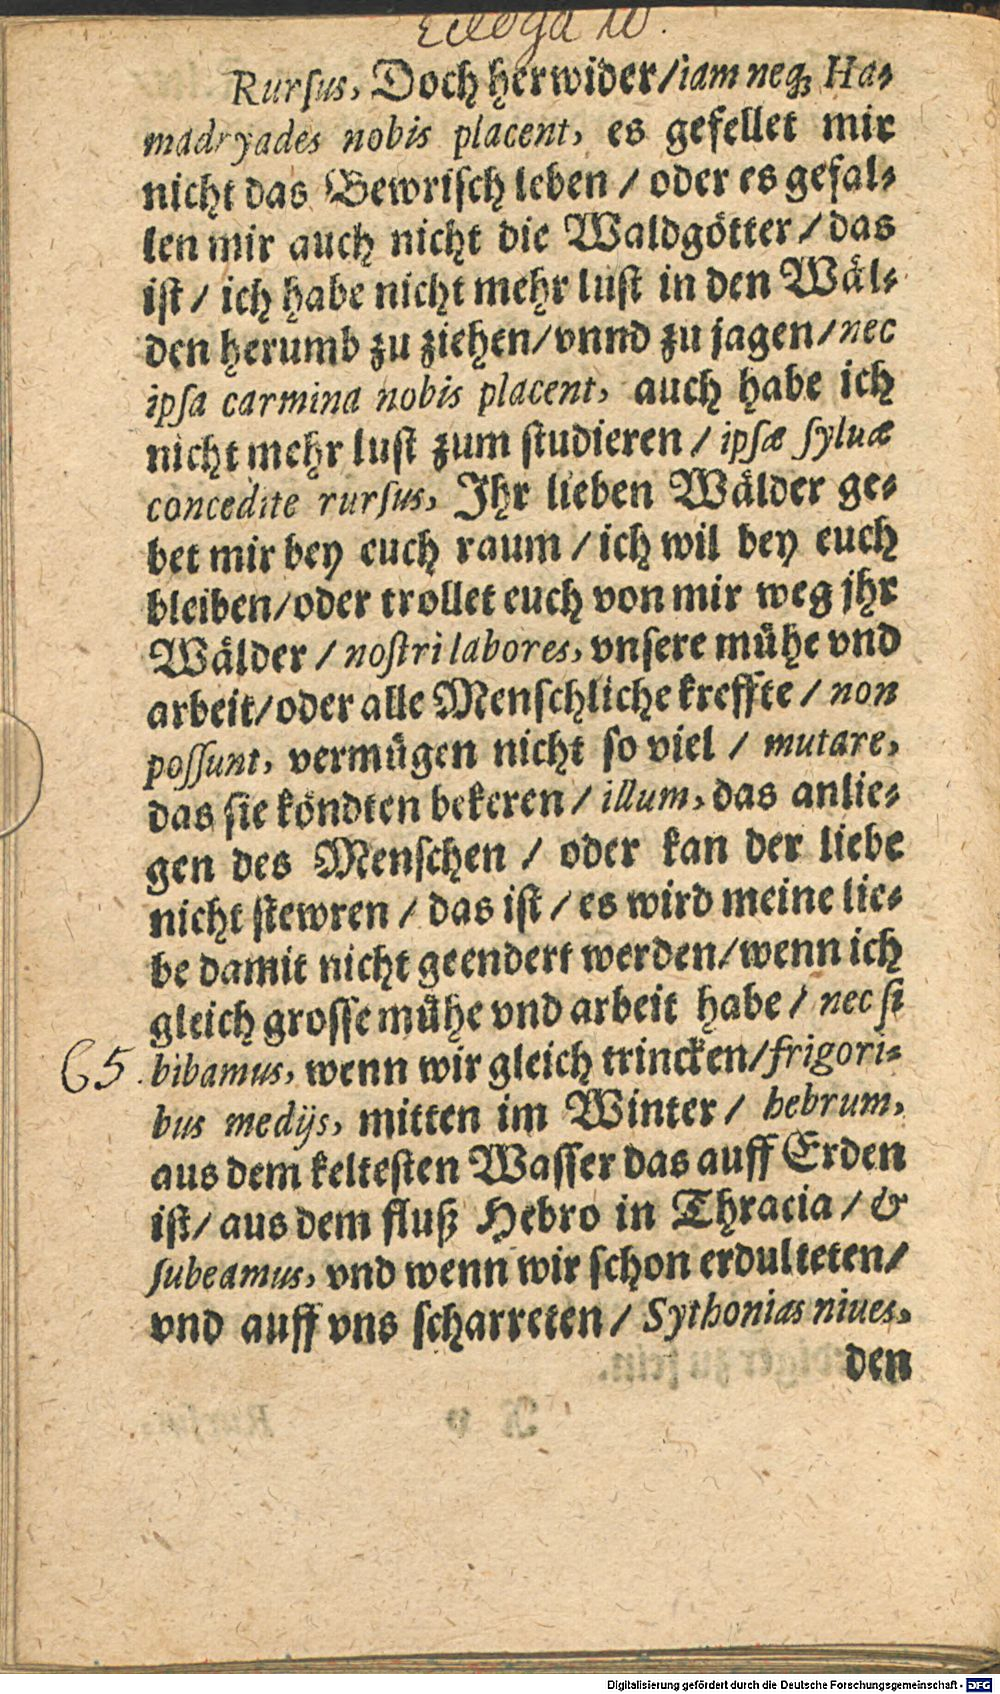 Ecloga 10.
Rurſus, Doch herwider/iam neq; Ha-
madryades nobis placent, es gefellet mir
nicht das Bewriſch leben / oder es gefal-
len mir auch nicht die Waldgötter / das
iſt / ich habe nicht mehr luſt in den Wäl-
den herumb zu ziehen/vnnd zu jagen/nec
ipſa carmina nobis placent, auch habe ich
nicht mehr luſt zum ſtudieren / ipſæ ſyluæ
concedite rurſus, Ihr lieben Wälder ge-
bet mir bey euch raum / ich wil bey euch
bleiben/oder trollet euch von mir weg jhr
Wälder / noſtri labores, vnſere mühe vnd
arbeit/oder alle Menſchliche kreffte / non
poſſunt, vermügen nicht ſo viel / mutare,
das ſie köndten bekeren / illum, das anlie-
gen des Menſchen / oder kan der liebe
nicht ſtewren / das iſt / es wird meine lie-
be damit nicht geendert werden/wenn ich
gleich groſſe mühe vnd arbeit habe / nec ſi
65. bibamus, wenn wir gleich trincken/frigori-
bus medijs, mitten im Winter / hebrum,
aus dem kelteſten Waſſer das auff Erden
iſt/ aus dem fluß Hebro in Thracia / &
ſubeamus, vnd wenn wir ſchon erdulteten/
vnd auff vns ſcharreten / Sythonias niues,
den
Digitalisierung gefördert durch die Deutsche Forschungsgemeinschaft - DFG